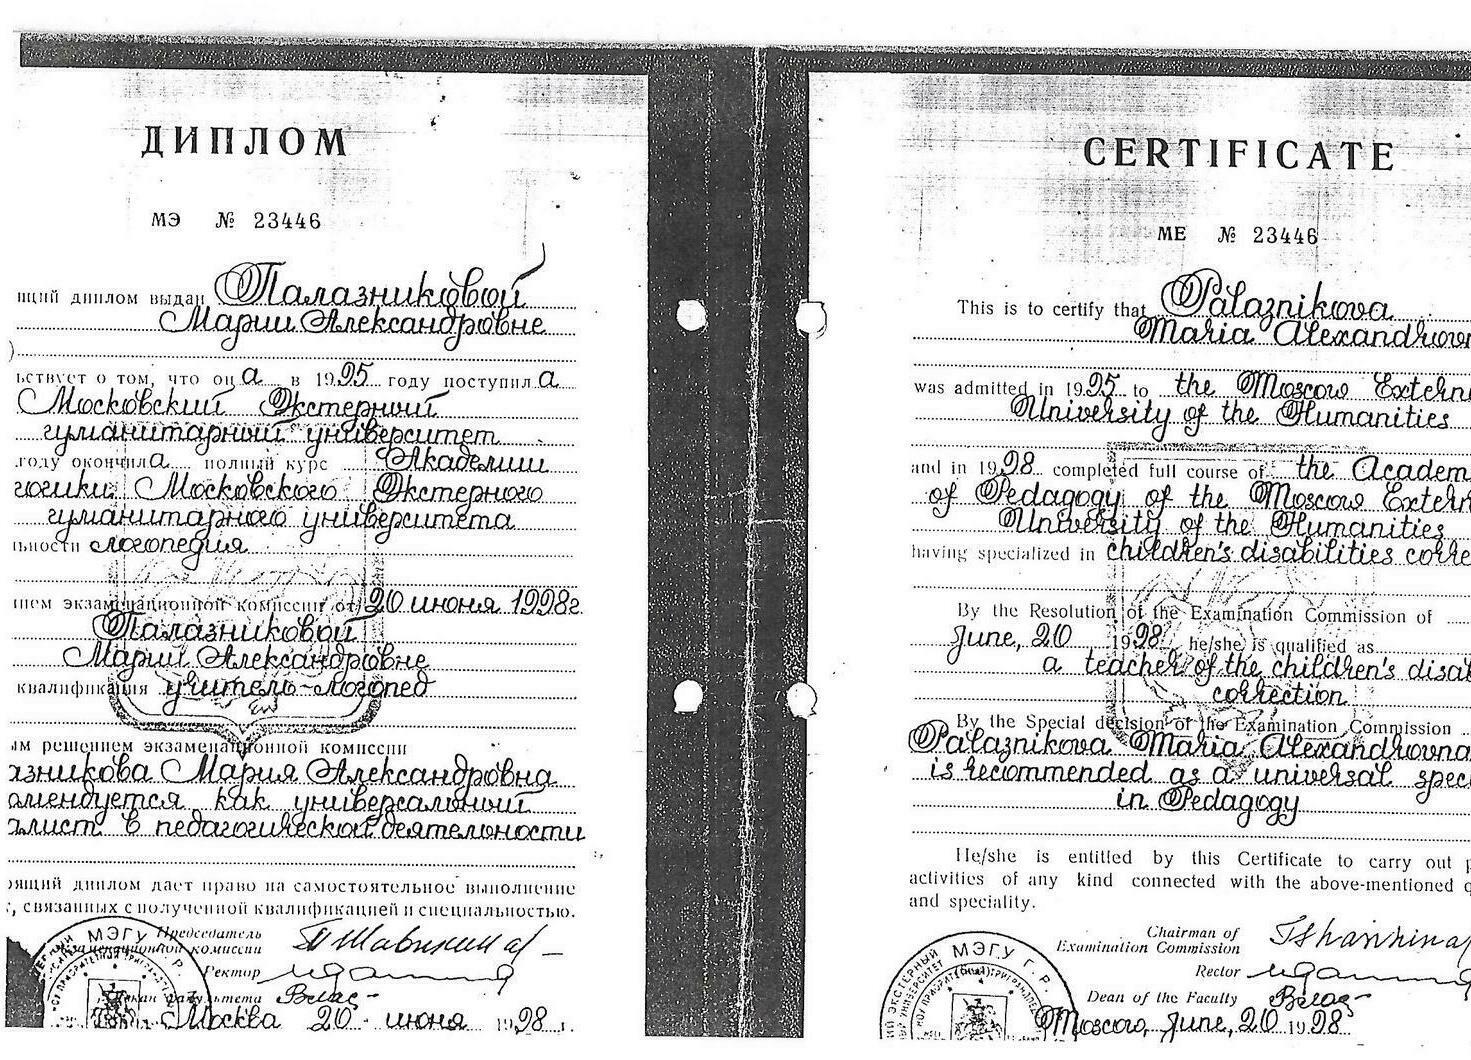 ДИПЛОМ
МЭ № 23446
щий диплом выдан Палазниковой
Марии Александровне
)
ьствует о том, что она в 1995 году поступила
Московский Экстерный
гуманитарный университет
году окончила полный курс Академии
гогики Московского Экстерного
гуманитарного университета
льности логопедия
нием экзаменационной комиссии от 20 июня 1998г
Палазниковой
Марии Александровне
квалификация учитель-логопед
ым решением экзаменационной комиссии
азникова Мария Александровна
омендуется как универсальный
алист в педагогической деятельности
ящий диплом дает право на самостоятельное выполнение
, связанных с полученной квалификацией и специальностью.
Председатель
экзаменационной комиссии
Ректор
Декан факультета
Москва 20 июня 1998 г.
МЭГУ Г. Р.
CERTIFICATE
ME № 23446
This is to certify that Palaznikova
Maria Alexandrovn
was admitted in 1995 to the Moscow Extern
University of the Humanities
and in 1998 completed full course of the Academ
of Pedagogy of the Moscow Extern
University of the Humanities
having specialized in children's disabilities corre
By the Resolution of the Examination Commission of
June, 20 1998 he/she is qualified as
a teacher of the children's disab
correction
By the Special decision of the Examination Commission
Palaznikova Maria Alexandrovna
is recommended as a universal spec
in Pedagogy
He/she is entitled by this Certificate to carry out p
activities of any kind connected with the above-mentioned q
and speciality.
Chairman of
Examination Commission
Rector
Dean of the Faculty
Moscow, June, 20 1998
МЭГУ Г. Р.